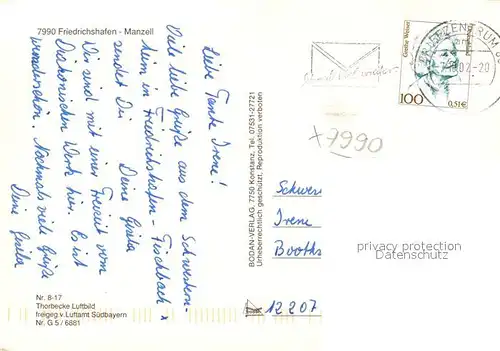 7990 Friedrichshafen - Manzell
Liebe Tante Irene!
Viele liebe Grüße aus dem Schwestern-
heim in Friedrichshafen - Fischbach
sendet Dir Deine Gisela
Wir sind mit einer Freizeit vom
Diakonischen Werk hier. Es ist
wunderschön. Nochmals viele Grüße
Deine Gisela
Nr. 8-17
Thorbecke Luftbild
freigeg. v. Luftamt Südbayern
Nr. G 5 / 6881
BODAN-VERLAG, 7750 Konstanz, Tel. 07531-27721
Urheberrechtlich geschützt, Reproduktion verboten
Grethe Weiser
100
0,51€
x 7990
Schwes
Irene
Booths
12207
privacy protection
Datenschutz